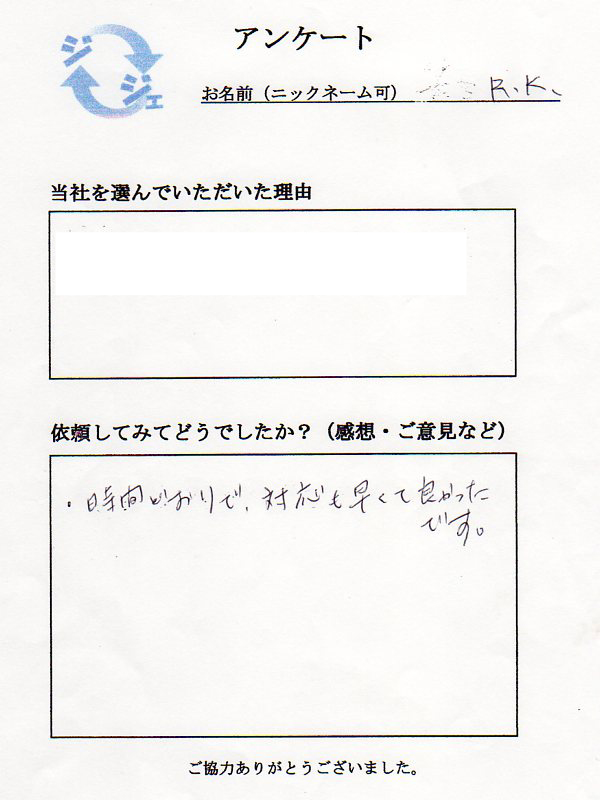 ジジェ
アンケート
お名前（ニックネーム可） R.K.
当社を選んでいただいた理由
依頼してみてどうでしたか？（感想・ご意見など）
・時間どおりで、対応も早くて良かった
です。
ご協力ありがとうございました。